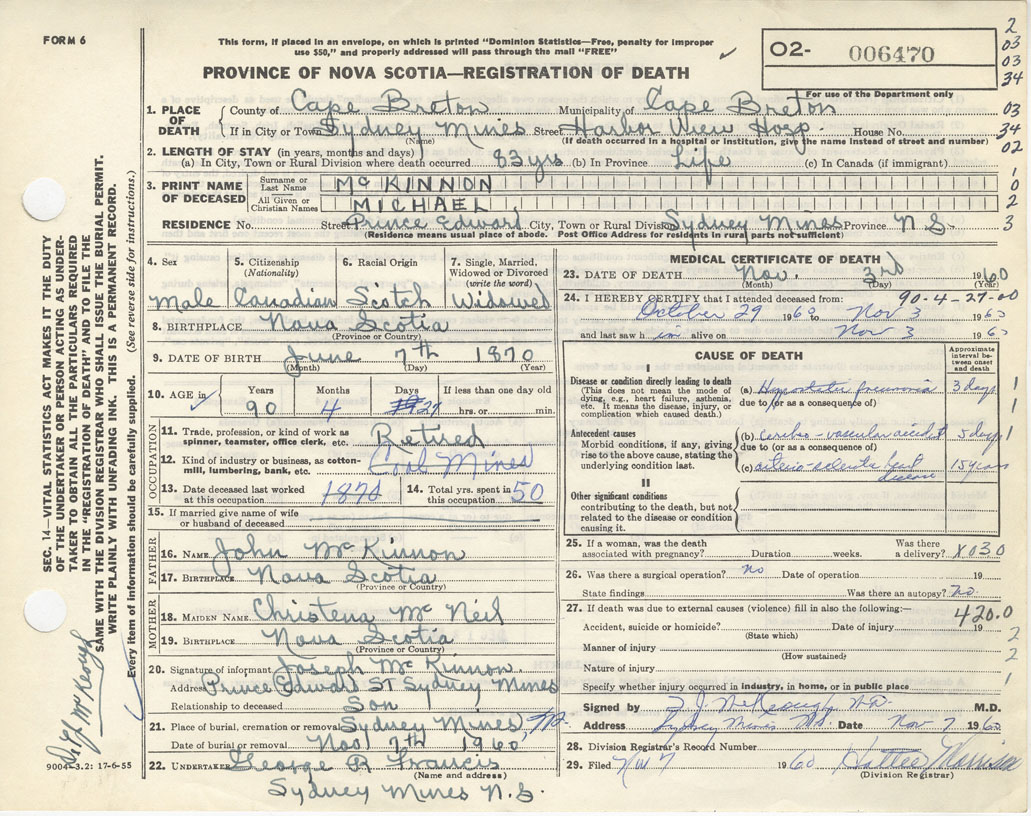 FORM 6
This form, if placed in an envelope, on which is printed "Dominion Statistics—Free, penalty for improper
use $50," and properly addressed will pass through the mail "FREE"
PROVINCE OF NOVA SCOTIA—REGISTRATION OF DEATH
O2- 006470
For use of the Department only
2
03
03
34
03
34
02
1
0
2
3
1. PLACE OF DEATH { County of Cape Breton Municipality of Cape Breton
If in City or Town Sydney Mines Street Harbor View Hosp. House No.
(Name) (If death occurred in a hospital or institution, give the name instead of street and number)
2. LENGTH OF STAY (in years, months and days)
(a) In City, Town or Rural Division where death occurred 83 yrs (b) In Province Life (c) In Canada (if immigrant)
3. PRINT NAME OF DECEASED { Surname or Last Name McKINNON
All Given or Christian Names MICHAEL
RESIDENCE No. Street Prince Edward City, Town or Rural Division Sydney Mines Province N.S.
(Residence means usual place of abode. Post Office Address for residents in rural parts not sufficient)
4. Sex 5. Citizenship (Nationality) 6. Racial Origin 7. Single, Married, Widowed or Divorced (write the word)
Male Canadian Scotch Widowed
8. BIRTHPLACE Nova Scotia
(Province or Country)
9. DATE OF BIRTH June 7th 1870
(Month) (Day) (Year)
10. AGE in Years Months Days If less than one day old
90 4 27 hrs. or min.
OCCUPATION
11. Trade, profession, or kind of work as spinner, teamster, office clerk, etc. Retired
12. Kind of industry or business, as cotton-mill, lumbering, bank, etc. Coal Mines
13. Date deceased last worked at this occupation 14. Total yrs. spent in this occupation 50
15. If married give name of wife or husband of deceased
FATHER
16. NAME John McKinnon
17. BIRTHPLACE Nova Scotia
(Province or Country)
MOTHER
18. MAIDEN NAME Christena McNeil
19. BIRTHPLACE Nova Scotia
(Province or Country)
20. Signature of informant Joseph McKinnon.
Address Prince Edward ST Sydney Mines
Relationship to deceased Son
21. Place of burial, cremation or removal Sydney Mines, NS.
Date of burial or removal Nov 7th 1960
22. UNDERTAKER George R Francis
(Name and address)
Sydney Mines N.S.
MEDICAL CERTIFICATE OF DEATH
23. DATE OF DEATH Nov. 3rd 1960
(Month) (Day)
90-4-27-00
24. I HEREBY CERTIFY that I attended deceased from:
October 29 1960 to Nov 3 1960
and last saw him alive on Nov 3 1960
CAUSE OF DEATH
Approximate interval between onset and death
I
Disease or condition directly leading to death
(This does not mean the mode of dying, e.g., heart failure, asthenia, etc. It means the disease, injury, or complication which caused death.)
(a) Hypostatic pneumonia 3 days 1
due to (or as a consequence of) 1
Antecedent causes
Morbid conditions, if any, giving rise to the above cause, stating the underlying condition last.
(b) cerebro-vascular accident 5 days 1
due to (or as a consequence of)
(c) arterio-sclerotic heart disease 15 years
II
Other significant conditions
contributing to the death, but not related to the disease or condition causing it.
25. If a woman, was the death associated with pregnancy? Duration weeks. Was there a delivery? X030
26. Was there a surgical operation? no Date of operation 19
State findings Was there an autopsy? no.
27. If death was due to external causes (violence) fill in also the following:— 420.0
Accident, suicide or homicide? Date of injury 19
(State which) 2
Manner of injury 2
(How sustained)
Nature of injury
Specify whether injury occurred in industry, in home, or in public place 1
Signed by McKeough M.D. M.D.
Address Sydney Mines N.S. Date Nov 7 1960
28. Division Registrar's Record Number
29. Filed Nov 7 1960 Hattie
(Division Registrar)
SEC. 14—VITAL STATISTICS ACT MAKES IT THE DUTY
OF THE UNDERTAKER OR PERSON ACTING AS UNDER-
TAKER TO OBTAIN ALL THE PARTICULARS REQUIRED
IN THE "REGISTRATION OF DEATH" AND TO FILE THE
SAME WITH THE DIVISION REGISTRAR WHO SHALL ISSUE THE BURIAL PERMIT.
WRITE PLAINLY WITH UNFADING INK. THIS IS A PERMANENT RECORD.
Every item of information should be carefully supplied. (See reverse side for instructions.)
McKeough
9004-3.2: 17-6-55